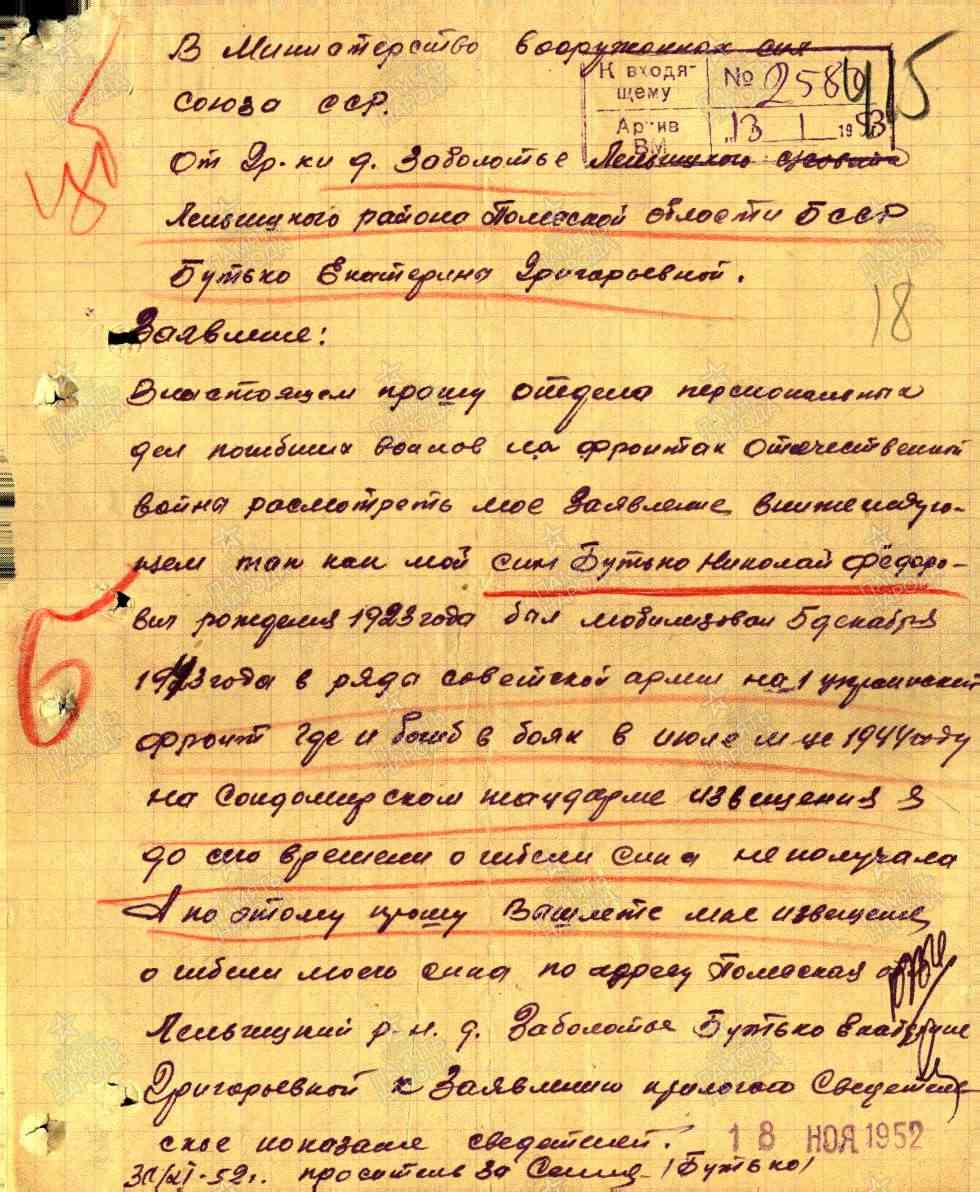 В Министерство вооруженных сил
К входящему № 2580
415
союза ССР.
Архив ВМ "13 1 1953
От Гр-ки д. Заболотье Лельчицкого
45
Лельчицкого района Полеской области БССР
Бутько Екатерины Григорьевной.
18
Заявление:
В настоящем прошу отдела персиональных
дел погибших воинов на фронтах Отечественной
война расмотреть мое Заявление в нижеследую-
щем так как мой син Бутько Николай Фёдоро-
вич рождения 1923 года был мобилизован 5 декабря
6
1943 года в ряда советской армии на 1 украинский
фронт Где и погиб в боях в июле м-це 1944 году
на Сандомирском извещения я
до сего времени о гибели сина не получала
А по этому прошу Вышлете мне извещение
о гибели моего сина по адресу Полеская
Лельчицкий р-н. д. Заболотье Бутько Екатерине
Григорьевной к Заявлению прилогаю Сведетель-
ское показание сведителей.
18 НОЯ 1952
просители За Сенна (Бутько)